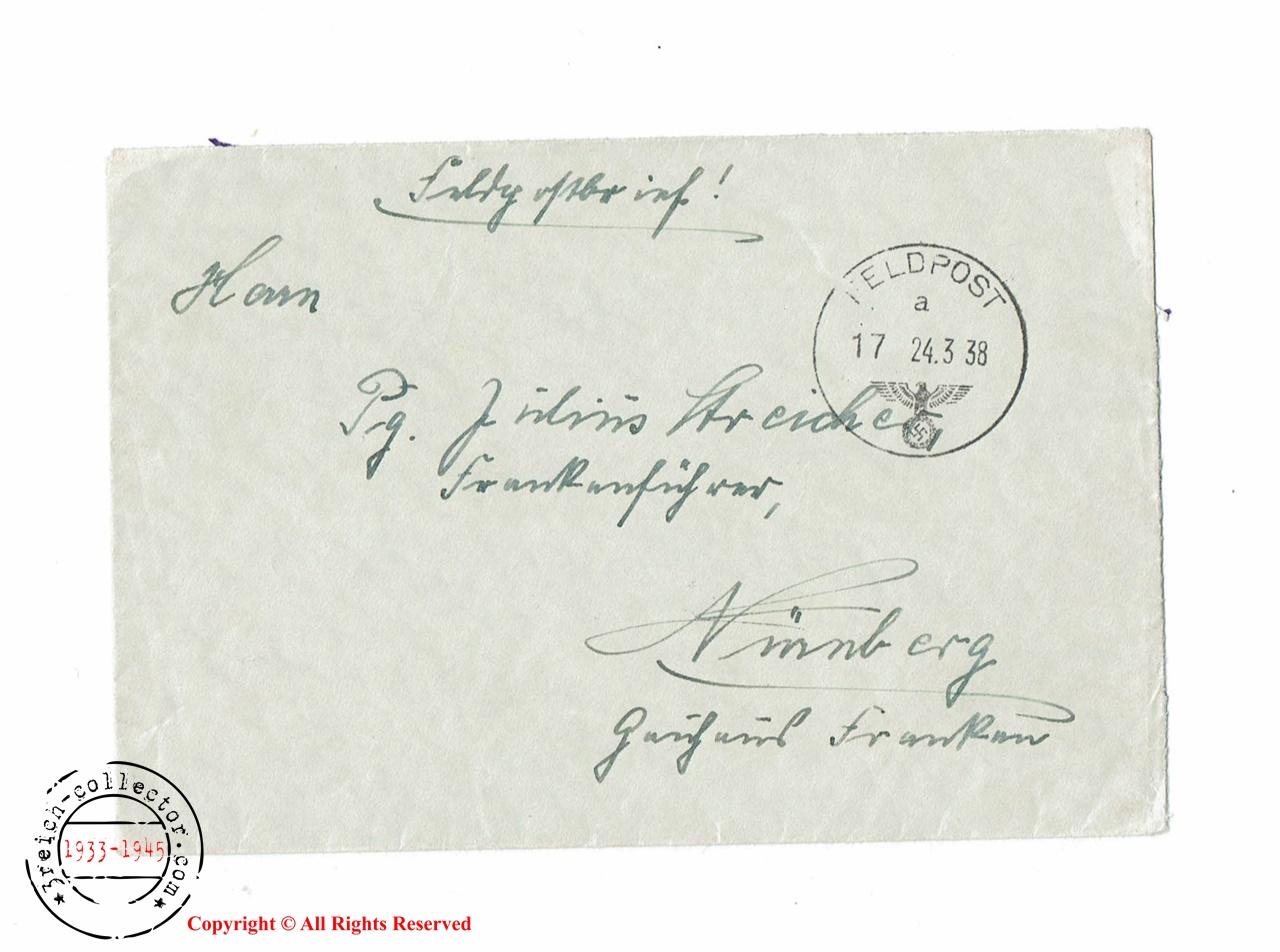 Feldpostbrief!
Herrn
FELDPOST
a
17 24.3 38
Pg. Julius Streicher,
Frankenführer,
Nürnberg
Gauhaus Franken
3reich-collector.com
1933-1945
Copyright © All Rights Reserved